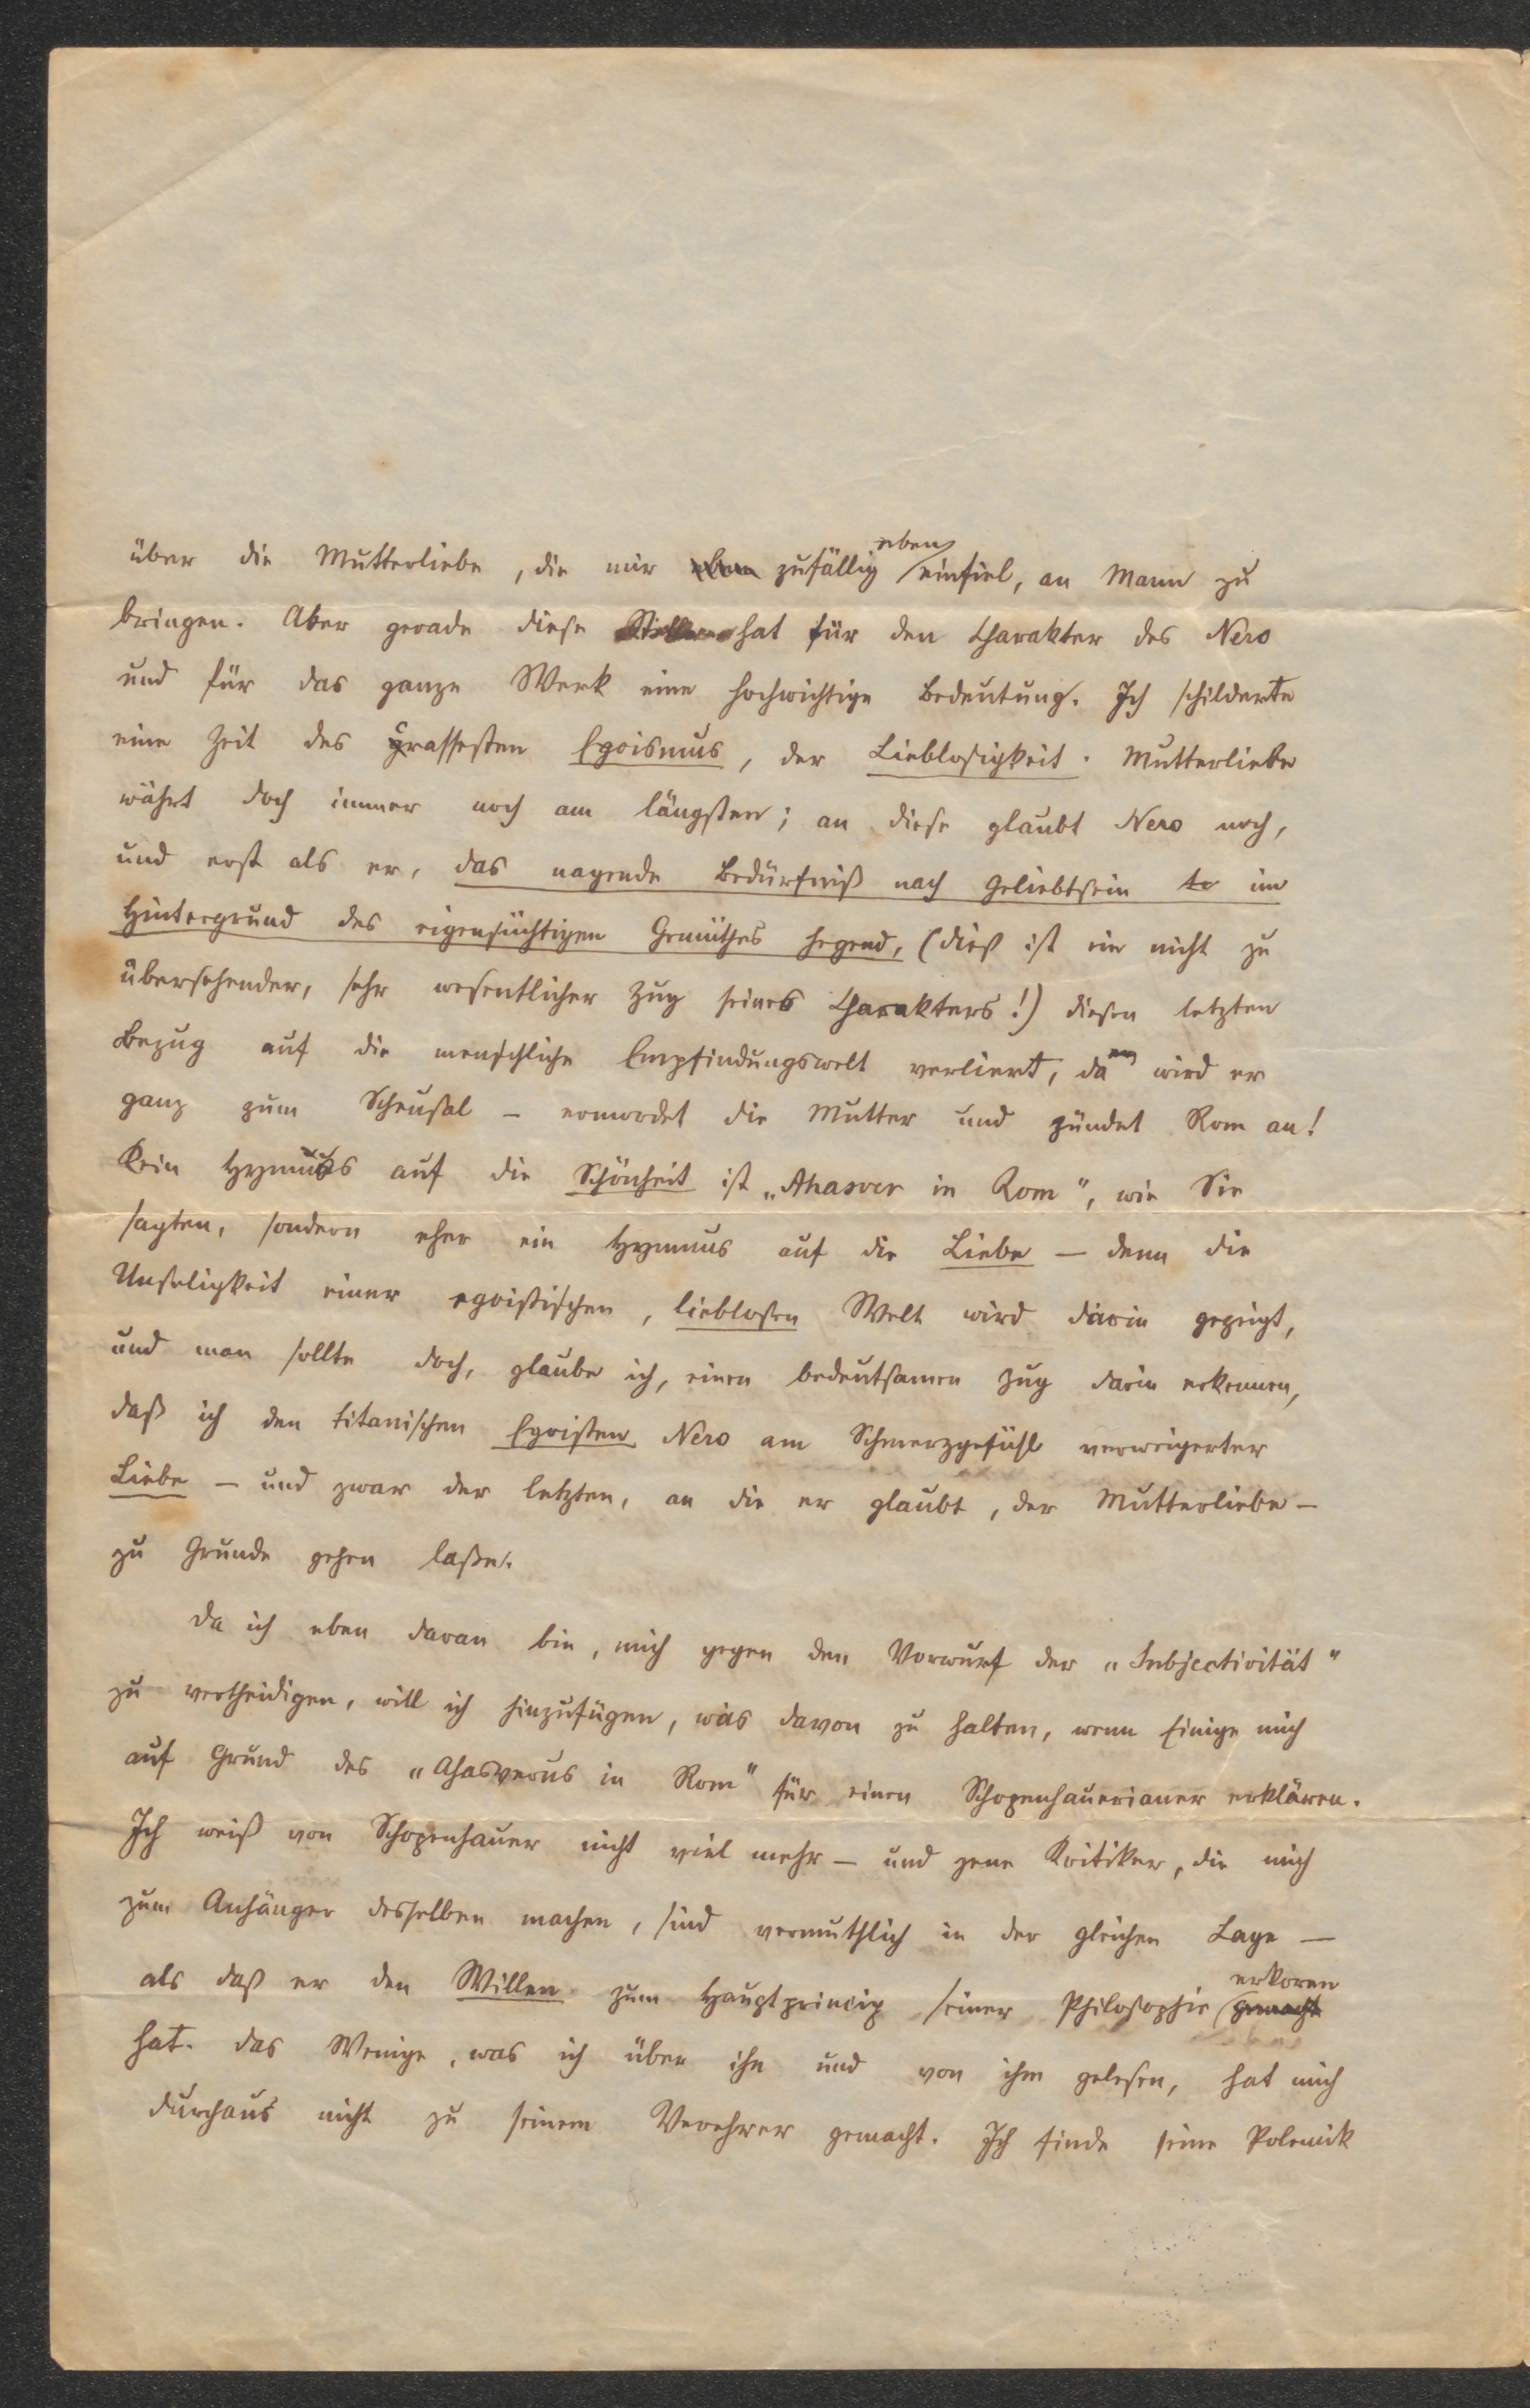 über die Mutterliebe, die mir eben zufällig eben einfiel, an Mann zu
bringen. Aber gerade diese Stelle hat für den Charakter des Nero
und für das ganze Werk eine hochwichtige Bedeutung. Ich schilderte
eine Zeit des grassesten Egoismus, der Lieblosigkeit. Mutterliebe
währt doch immer noch am längsten; an diese glaubt Nero noch,
und erst als er, das nagende Bedürfniß nach Geliebtsein im
Hintergrund des eigensüchtigen Gemüthes hegend, (dieß ist ein nicht zu
übersehender, sehr wesentlicher Zug seines Charakters!) diesen letzten
Bezug auf die menschliche Empfindungswelt verliert, dann wird er
ganz zum Scheusal – ermordet die Mutter und zündet Rom an!
Kein Hymnus auf die Schönheit ist „Ahasver in Rom“, wie Sie
sagten, sondern eher ein Hymnus auf die Liebe – denn die
Unseligkeit einer egoistischen, lieblosen Welt wird darin gezeigt,
und man sollte doch, glaube ich, einen bedeutsamen Zug darin erkennen,
daß ich den titanischen Egoisten Nero am Schmerzgefühl verweigerter
Liebe – und zwar der letzten, an die er glaubt, der Mutterliebe –
zu Grunde gehen lasse.
Da ich eben daran bin, mich gegen den Vorwurf der „Subjectivität“
zu vertheidigen, will ich hinzufügen, was davon zu halten, wenn Einige mich
auf Grund des „Ahasverus in Rom“ für einen Schopenhauerianer erklären.
Ich weiß von Schopenhauer nicht viel mehr – und jene Kritiker, die mich
zum Anhänger desselben machen, sind vermuthlich in der gleichen Lage –
als daß er den Willen zum Hauptprincip seiner Philosophie gemacht erkoren
hat. Das Wenige, was ich über ihn und von ihm gelesen, hat mich
durchaus nicht zu seinem Verehrer gemacht. Ich finde seine Polemik